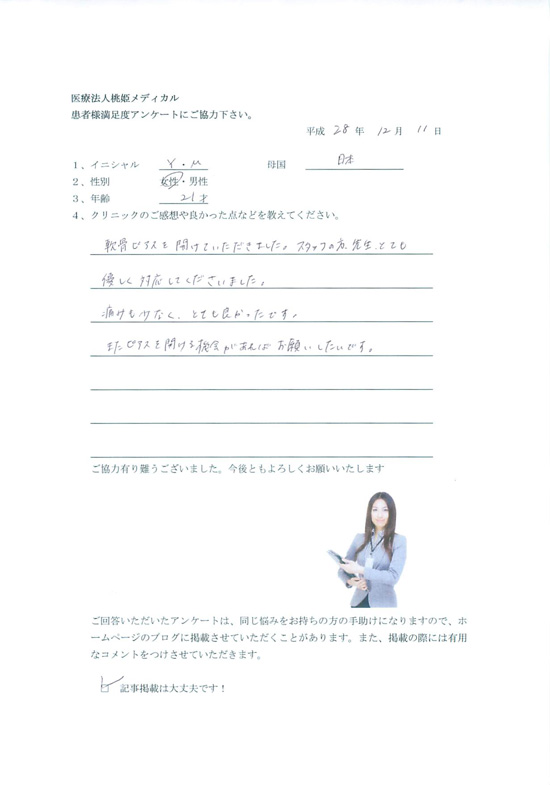 医療法人桃姫メディカル
患者様満足度アンケートにご協力下さい。
平成 28 年 12 月 11 日
1、イニシャル Y・M 母国 日本
2、性別 女性・男性
3、年齢 21才
4、クリニックのご感想や良かった点などを教えてください。
軟骨ピアスを開けていただきました。スタッフの方、先生、とても
優しく対応してくださいました。
痛みも少なく、とても良かったです。
またピアスを開ける機会があればお願いしたいです。
ご協力有り難うございました。今後ともよろしくお願いいたします
ご回答いただいたアンケートは、同じ悩みをお持ちの方の手助けになりますので、ホ
ームページのブログに掲載させていただくことがあります。また、掲載の際には有用
なコメントをつけさせていただきます。
記事掲載は大丈夫です！